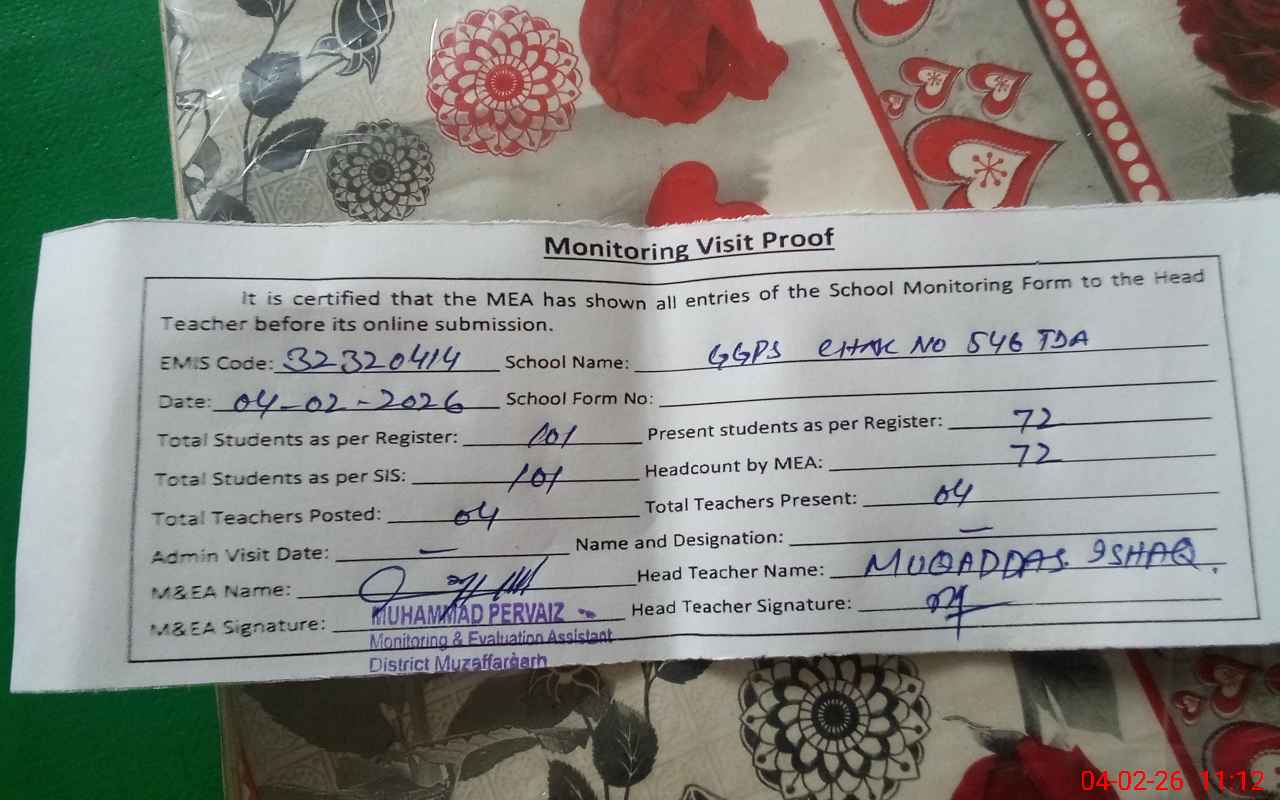 Monitoring Visit Proof
It is certified that the MEA has shown all entries of the School Monitoring Form to the Head
Teacher before its online submission.
EMIS Code: 32320414 School Name: GGPS CHAK NO 546 TDA
Date: 04-02-2026 School Form No:
Total Students as per Register: 101 Present students as per Register: 72
Total Students as per SIS: 101 Headcount by MEA: 72
Total Teachers Posted: 04 Total Teachers Present: 04
Admin Visit Date: — Name and Designation: —
M&EA Name: Head Teacher Name: MUQADDAS ISHAQ.
M&EA Signature: Head Teacher Signature:
MUHAMMAD PERVAIZ
Monitoring & Evaluation Assistant
District Muzaffargarh
04-02-26 11:12